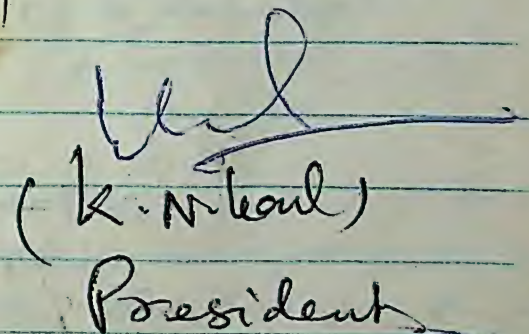 (K. N. Koul)
President